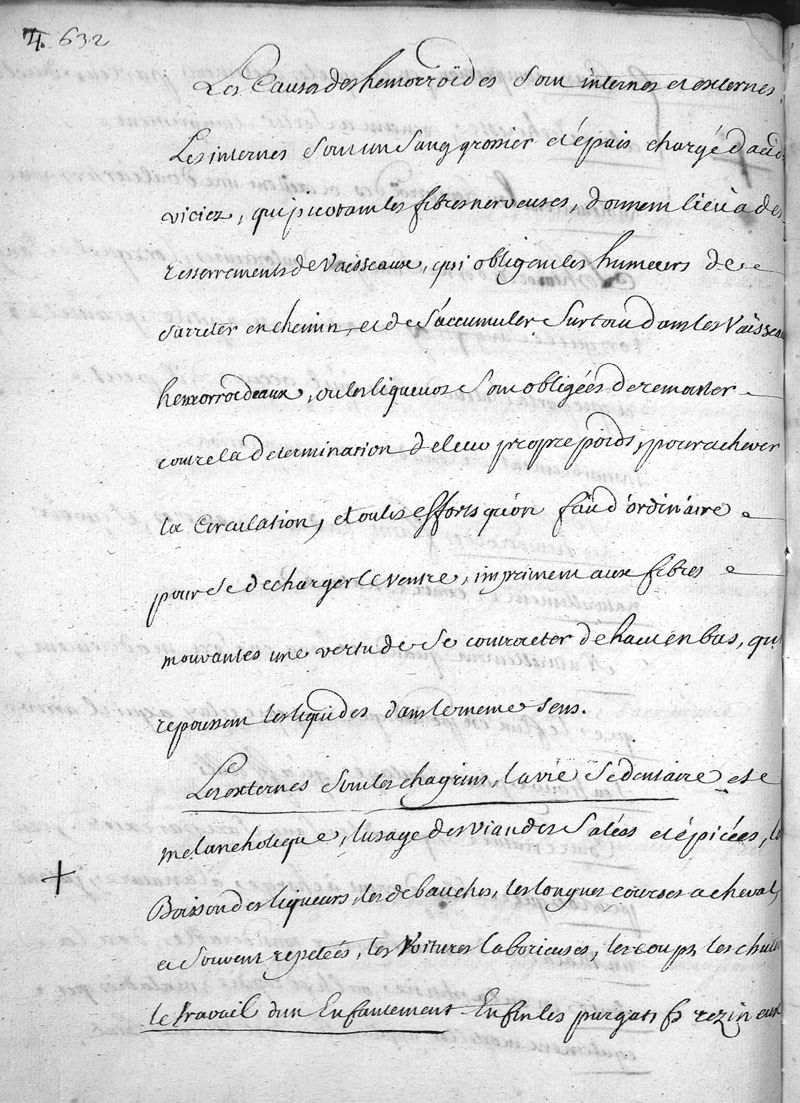 4. 632
Les Causes des hemorroïdes sont internes et externes.
Les internes sont un sang grossier et épais chargé d'acides
viciez, qui picotant les fibres nerveuses, donnent lieu a des
resserrements de Vaisseaux, qui obligent les humeurs de
s'arreter en chemin, et de s'accumuler surtout dans les Vaisseaux
hemorroïdaux, ou les liqueurs sont obligées de remonter
contre la determination de leur propre poids, pour achever
la circulation, et ou les efforts qu'on fait d'ordinaire
pour se decharger le ventre, impriment aux fibres
mouvantes une vertu de se contracter de haut en bas, qui
repoussent les liquides dans le meme sens.
Les externes sont les chagrins, la vie sedentaire et
melancholique, l'usage des viandes salées et épicées, la
Boisson des liqueurs, les debauches, les longues courses a cheval,
et souvent repetées, les Voitures laborieuses, les coups, les chutes
le travail d'un Enfantement Enfin les purgatifs rezineux